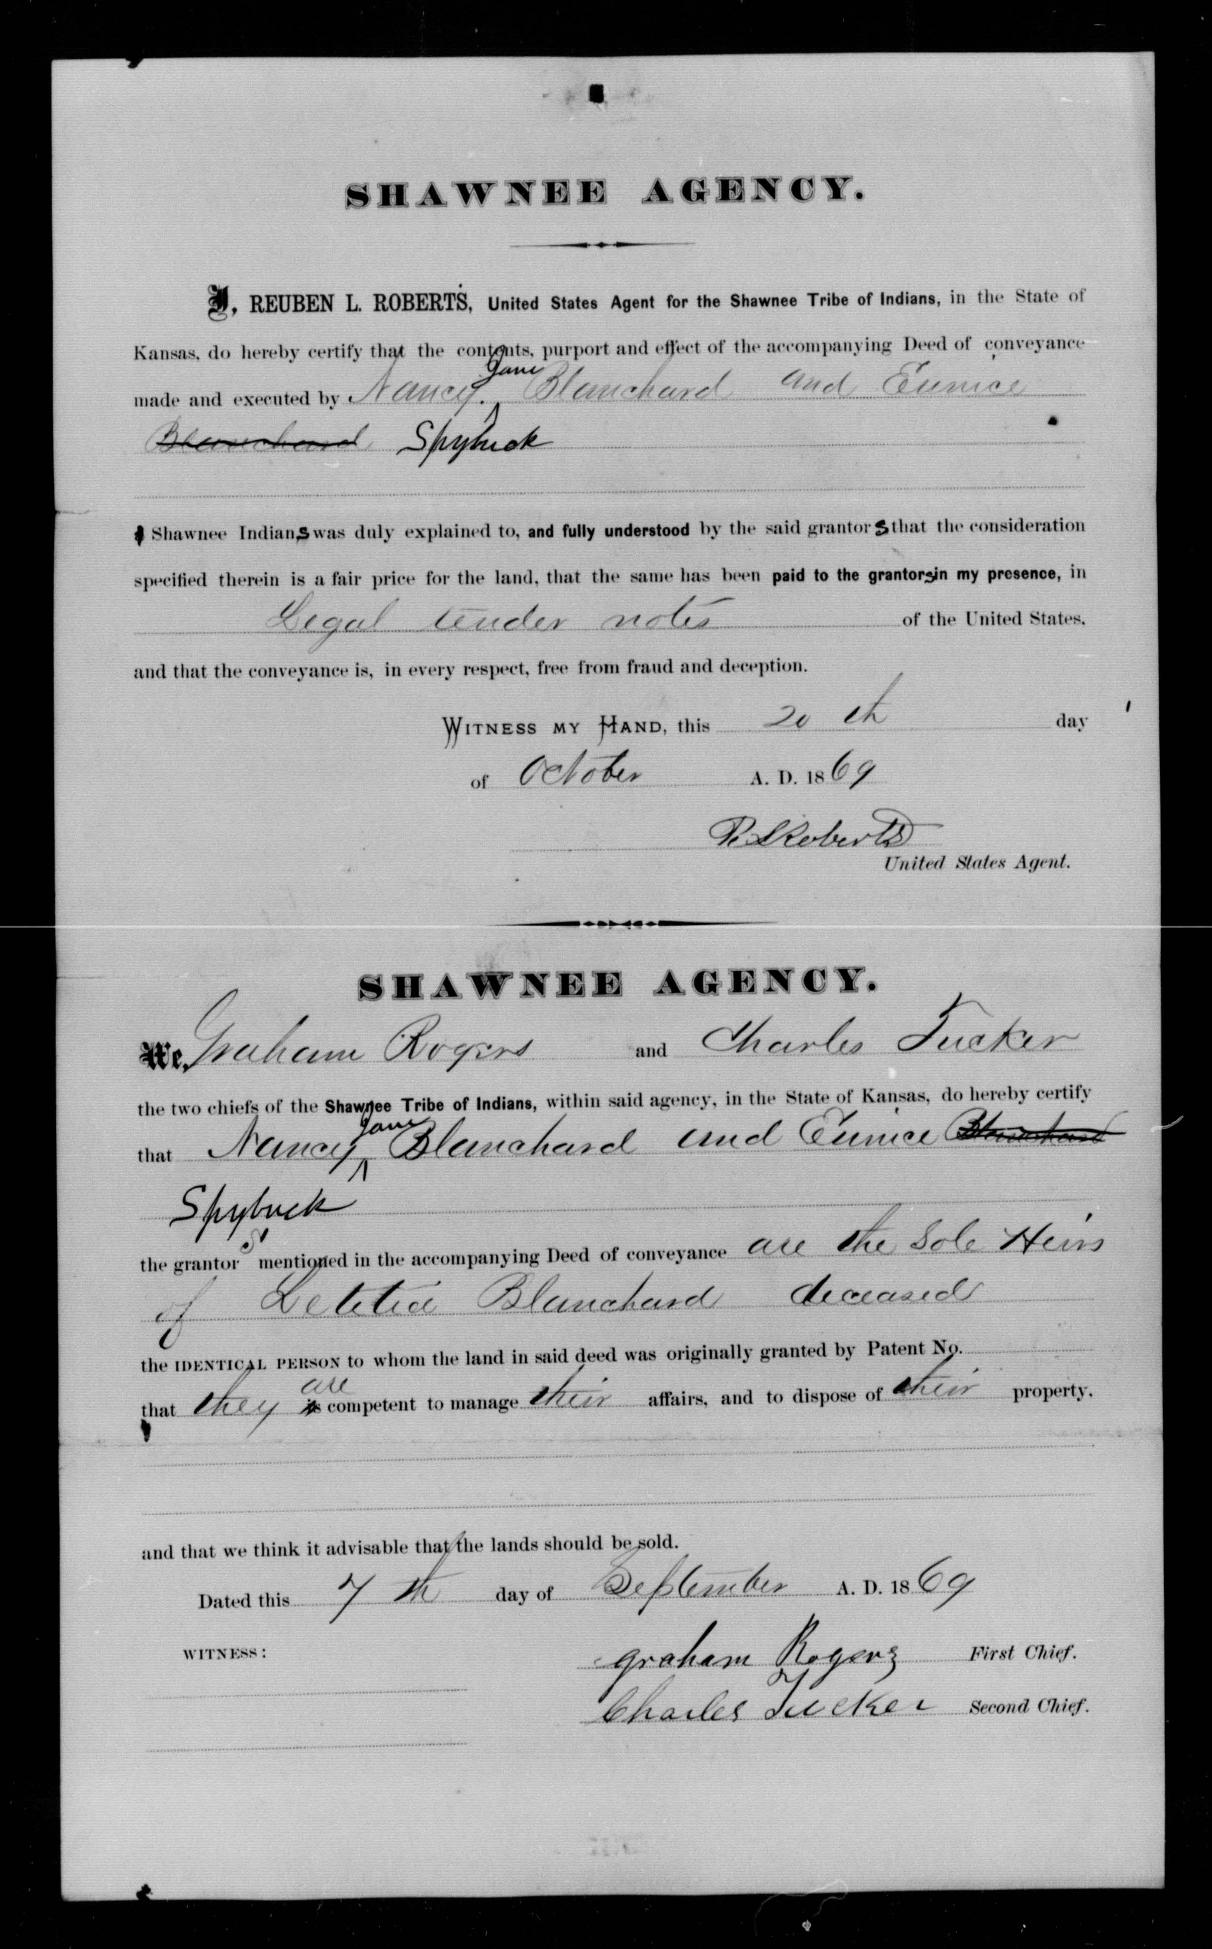 SHAWNEE AGENCY.
I, REUBEN L. ROBERTS, United States Agent for the Shawnee Tribe of Indians, in the State of
Kansas, do hereby certify that the contents, purport and effect of the accompanying Deed of conveyance
Jane
made and executed by Nancy Blanchard and Eunice
Blanchard Spybuck
Shawnee Indians was duly explained to, and fully understood by the said grantors that the consideration
specified therein is a fair price for the land, that the same has been paid to the grantors in my presence, in
Legal tender notes of the United States,
and that the conveyance is, in every respect, free from fraud and deception.
WITNESS MY HAND, this 20 th day
of October A. D. 1869
R. L. Roberts
United States Agent.
SHAWNEE AGENCY.
We, Graham Rogers and Charles Tucker
the two chiefs of the Shawnee Tribe of Indians, within said agency, in the State of Kansas, do hereby certify
Jane
that Nancy Blanchard and Eunice Blanchard
Spybuck
the grantors mentioned in the accompanying Deed of conveyance are the Sole Heirs
of Letitia Blanchard deceased
the IDENTICAL PERSON to whom the land in said deed was originally granted by Patent No.
are
that they is competent to manage their affairs, and to dispose of their property.
and that we think it advisable that the lands should be sold.
Dated this 7 th day of September A. D. 1869
WITNESS:
graham Rogers First Chief.
Charles Tucker Second Chief.